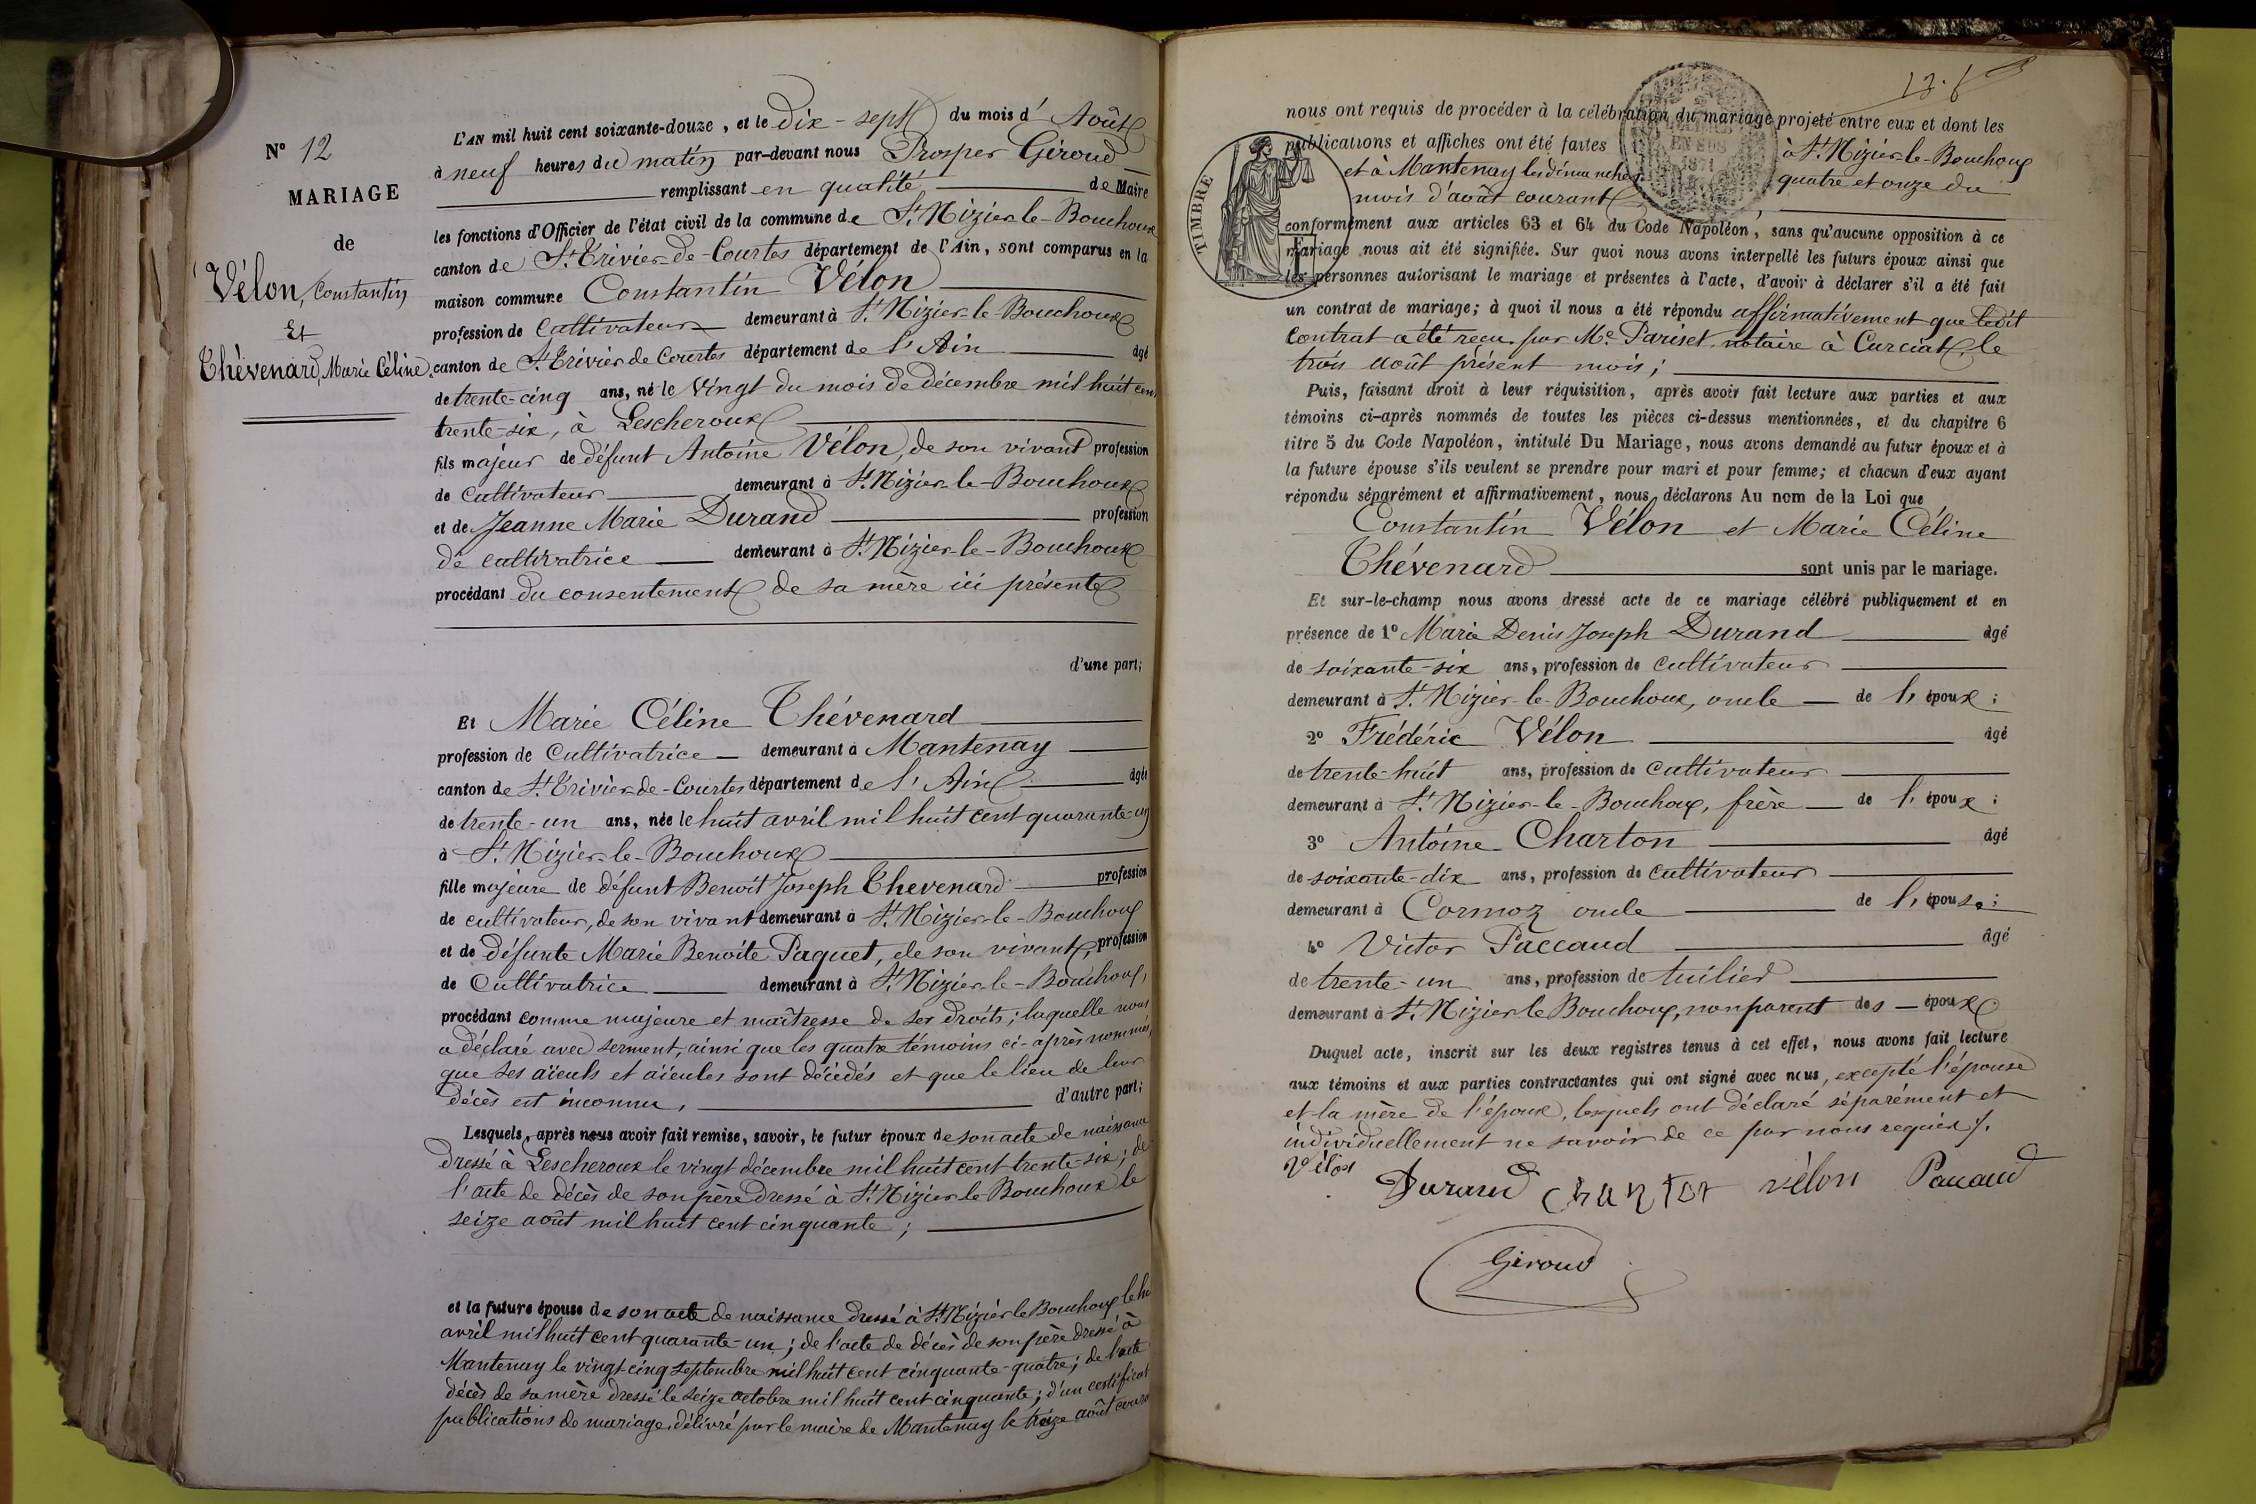 N° 12
MARIAGE
de
Vélon, Constantin
Et
Thévenard, Marie Céline.
L'AN mil huit cent soixante-douze, et le dix-sept du mois d'Août
à neuf heures du matin par-devant nous Prosper Giroud
remplissant en qualité de Maire
les fonctions d'Officier de l'état civil de la commune de St Nizier-le-Bouchoux
canton de St Trivier-de-Courtes département de l'Ain, sont comparus en la
maison commune Constantin Vélon
profession de Cultivateur demeurant à St Nizier-le-Bouchoux
canton de St Trivier de Courtes département de l'Ain âgé
de trente-cinq ans, né le Vingt du mois de décembre mil huit cent
trente-six, à Lescheroux
fils majeur de défunt Antoine Vélon, de son vivant profession
de cultivateur demeurant à St Nizier-le-Bouchoux
et de Jeanne Marie Durand profession
de cultivatrice demeurant à St Nizier-le-Bouchoux
procédant du consentement de sa mère ici présente
d'une part;
Et Marie Céline Thévenard
profession de Cultivatrice demeurant à Mantenay
canton de St Trivier-de-Courtes département de l'Ain âgée
de trente-un ans, née le huit avril mil huit cent quarante-un
à St Nizier-le-Bouchoux
fille majeure de défunt Benoit Joseph Thevenard profession
de cultivateur, de son vivant demeurant à St Nizier-le-Bouchoux
et de défunte Marie Benoite Paquet, de son vivant, profession
de Cultivatrice demeurant à St Nizier-le-Bouchoux,
procédant comme majeure et maîtresse de ses droits; laquelle nous
a déclaré avec serment, ainsi que les quatre témoins ci-après nommés,
que ses aïeuls et aïeules sont décédés et que le lieu de leur
décès est inconnu, d'autre part;
Lesquels, après nous avoir fait remise, savoir, le futur époux de son acte de naissance
dressé à Lescheroux le vingt décembre mil huit cent trente-six; de
l'acte de décès de son père dressé à St Nizier-le-Bouchoux le
seize août mil huit cent cinquante;
et la future épouse de son acte de naissance dressé à St Nizier le Bouchoux le hu
avril mil huit cent quarante-un; de l'acte de décès de son père dressé à
Mantenay le vingt-cinq septembre mil huit cent cinquante-quatre; de l'acte
décès de sa mère dressé le seize octobre mil huit cent cinquante; d'un certificat
publications de mariage délivré par le maire de Mantenay le treize août cour
nous ont requis de procéder à la célébration du mariage projeté entre eux et dont les
publications et affiches ont été faites à St Nizier-le-Bouchoux
et à Mantenay les dimanches quatre et onze du
mois d'août courant,
TIMBRE
EN SUS
1871
conformément aux articles 63 et 64 du Code Napoléon, sans qu'aucune opposition à ce
mariage nous ait été signifiée. Sur quoi nous avons interpellé les futurs époux ainsi que
les personnes autorisant le mariage et présentes à l'acte, d'avoir à déclarer s'il a été fait
un contrat de mariage; à quoi il nous a été répondu affirmativement que ledit
Contrat a été reçu par Me Pariset, notaire à Curciat, le
trois août présent mois;
Puis, faisant droit à leur réquisition, après avoir fait lecture aux parties et aux
témoins ci-après nommés de toutes les pièces ci-dessus mentionnées, et du chapitre 6
titre 5 du Code Napoléon, intitulé Du Mariage, nous avons demandé au futur époux et à
la future épouse s'ils veulent se prendre pour mari et pour femme; et chacun d'eux ayant
répondu séparément et affirmativement, nous déclarons Au nom de la Loi que
Constantin Vélon et Marie Céline
Thévenard sont unis par le mariage.
Et sur-le-champ nous avons dressé acte de ce mariage célébré publiquement et en
présence de 1° Marie Denis Joseph Durand âgé
de soixante-six ans, profession de cultivateur
demeurant à St Nizier-le-Bouchoux, oncle de l'époux;
2° Frédéric Vélon âgé
de trente-huit ans, profession de cultivateur
demeurant à St Nizier-le-Bouchoux, frère de l'époux;
3° Antoine Charton âgé
de soixante-dix ans, profession de cultivateur
demeurant à Cormoz oncle de l'épouse;
4° Victor Paccaud âgé
de trente-un ans, profession de tuilier
demeurant à St Nizier le Bouchoux, non parent des époux
Duquel acte, inscrit sur les deux registres tenus à cet effet, nous avons fait lecture
aux témoins et aux parties contractantes qui ont signé avec nous, excepté l'épouse
et la mère de l'époux, lesquels ont déclaré séparément et
individuellement ne savoir de ce par nous requis/.
Vélon Durand Charton vélon Paccaud
Giroud